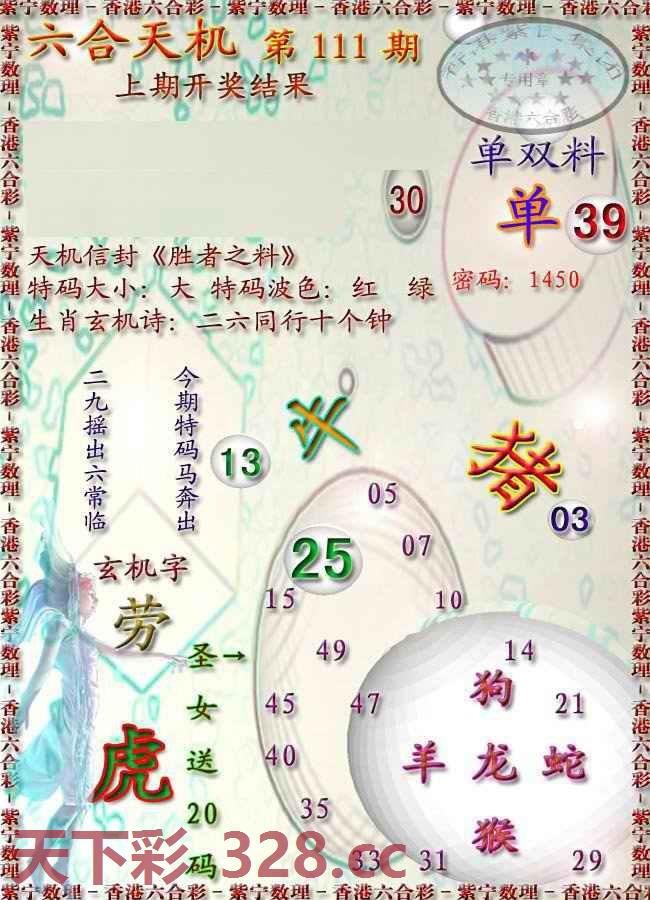 紫宁数理－香港六合彩－紫宁数理－香港六合彩－紫宁数理－香港六合彩
六合天机 第 111 期
上期开奖结果
专用章
香港六合彩
单双料
30
单 39
天机信封《胜者之料》
特码大小：大 特码波色：红 绿
密码：1450
生肖玄机诗：二六同行十个钟
今期特码马奔出
二九摇出六常临
13
猪
03
05
07
25
15
10
玄机字
劳
49
14
圣→
女
送
20
码
45
47
狗
21
羊 龙 蛇
虎
40
35
猴
33
31
29
天下彩.328.cc
紫宁数理－香港六合彩－紫宁数理－香港六合彩－紫宁数理－香港六合彩